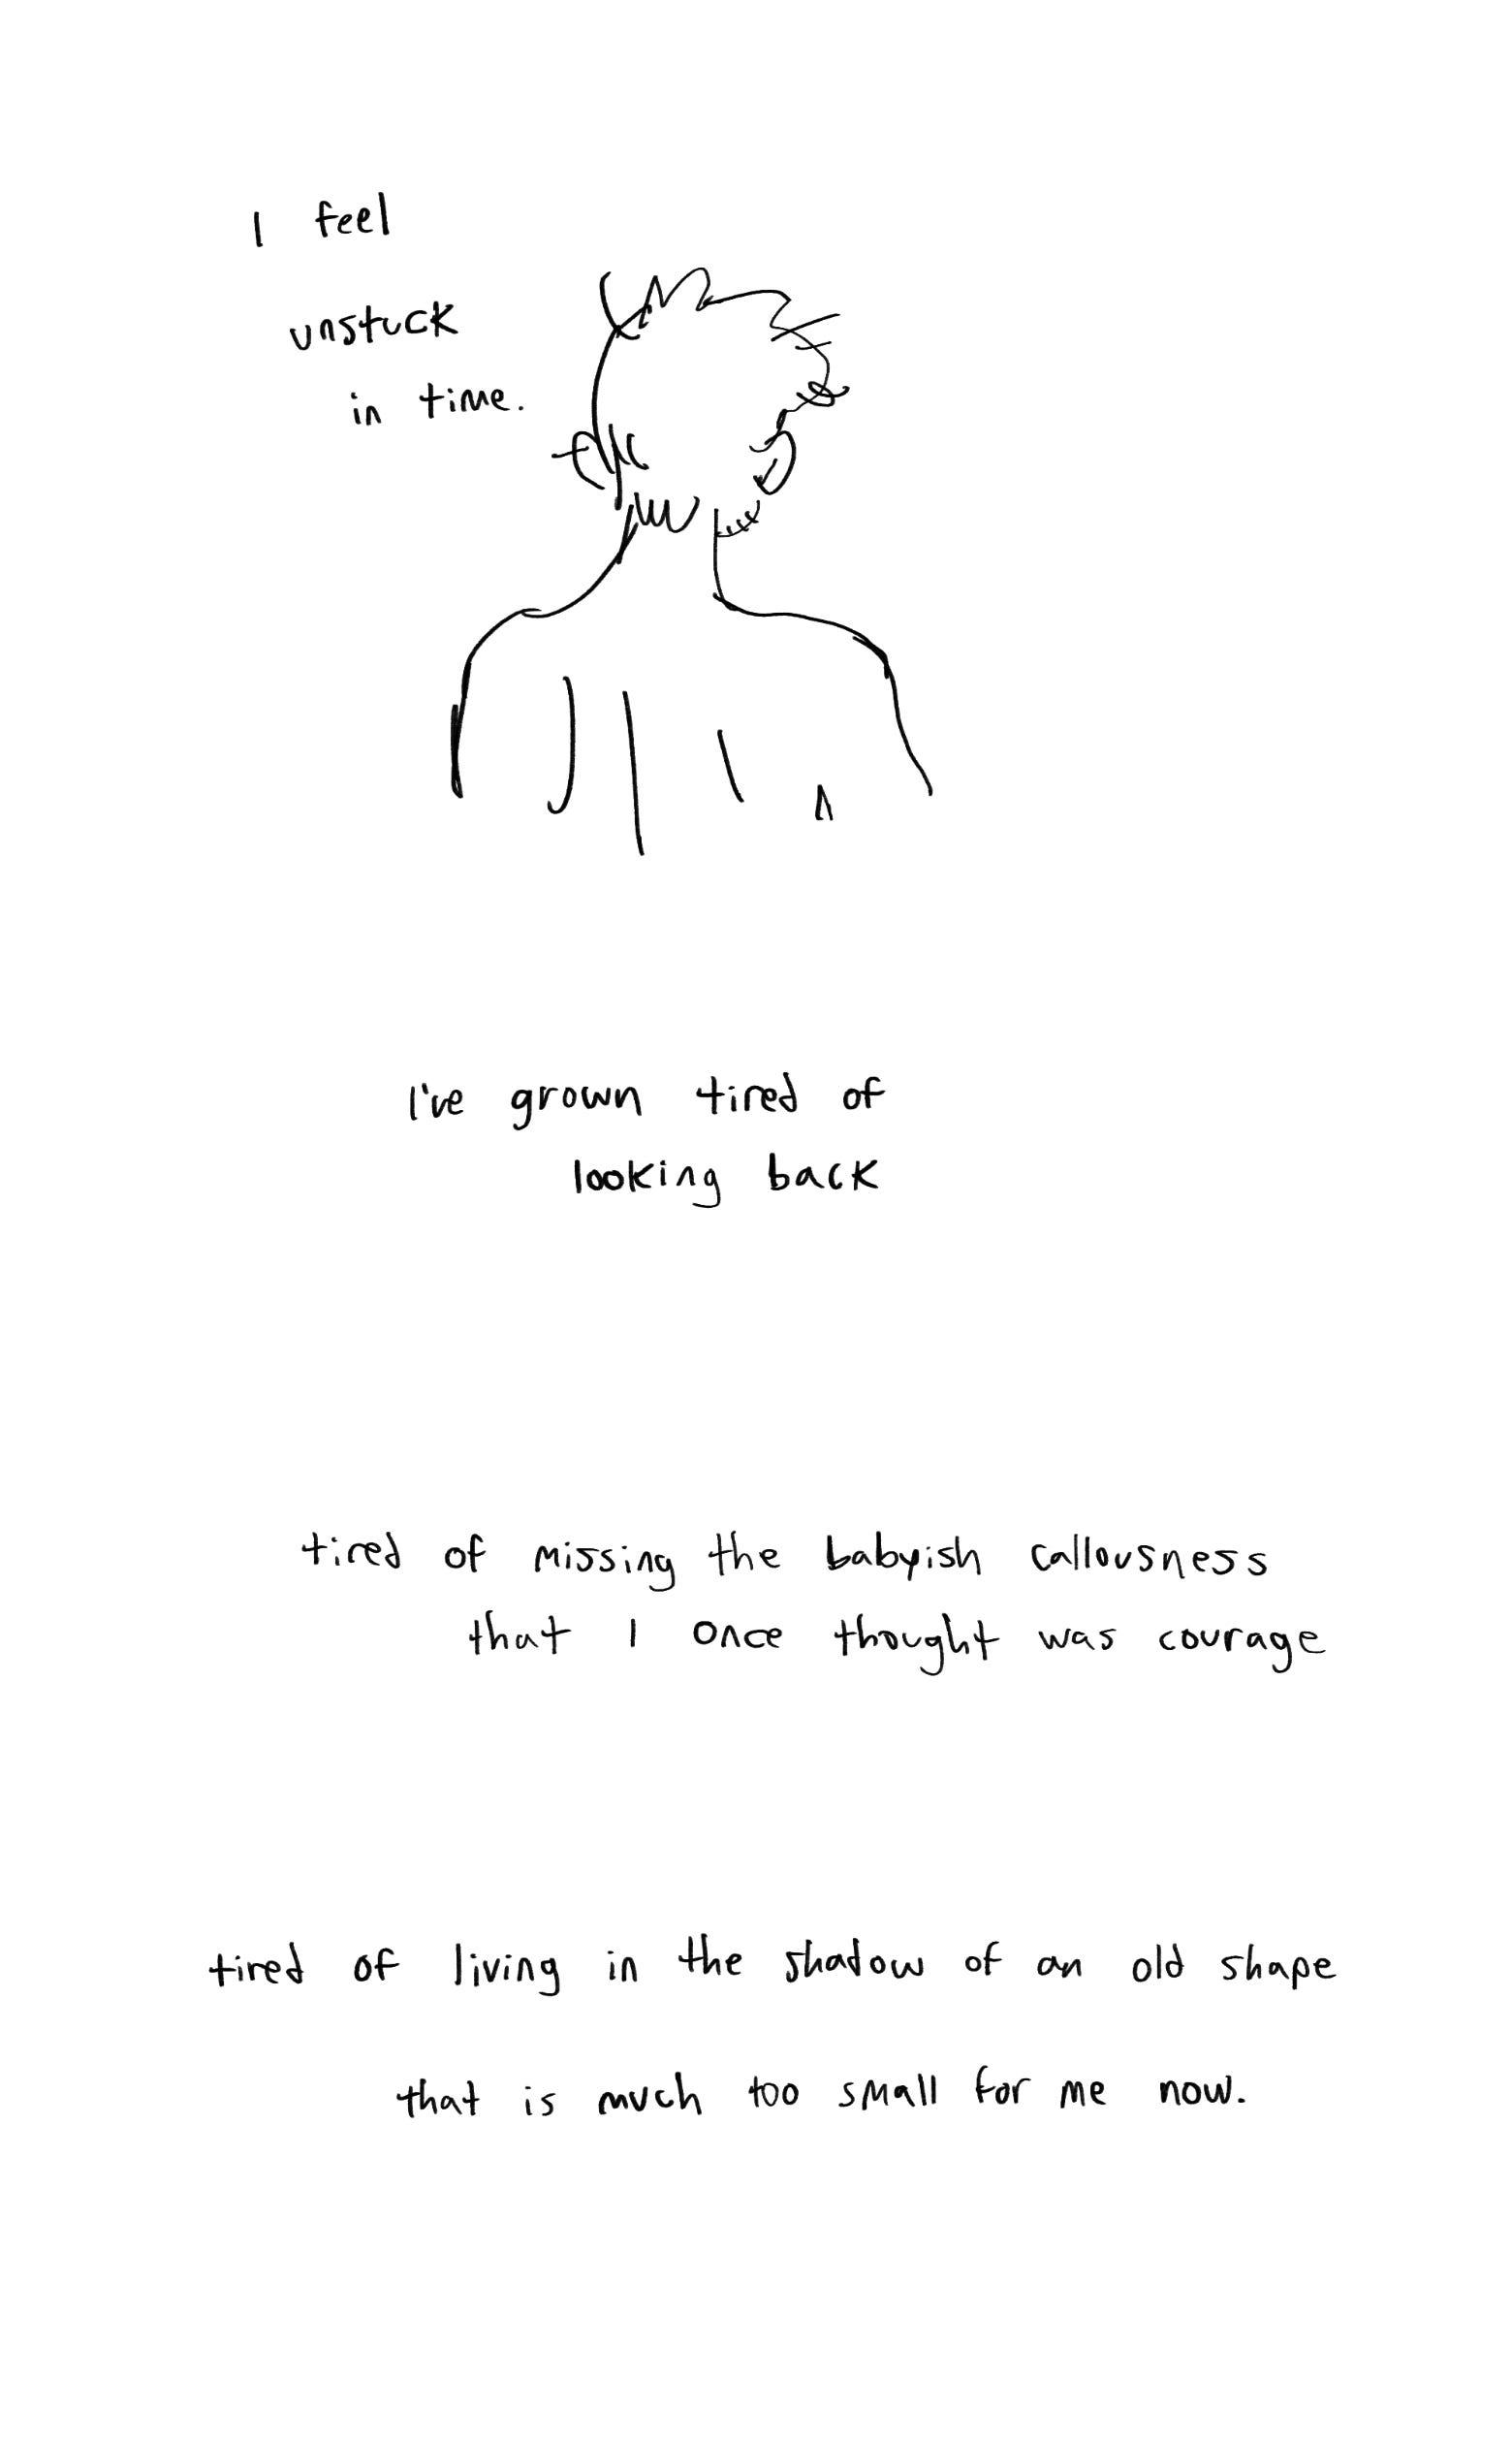 I feel
unstuck
in time.
I've grown tired of
looking back
tired of missing the babyish callousness
that I once thought was courage
tired of living in the shadow of an old shape
that is much too small for me now.